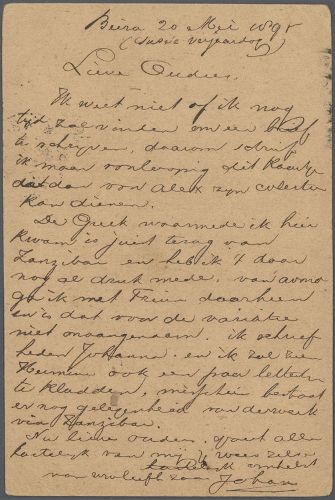 Beira 20 Mei 189
(Susie verjaardag)
Lieve Oudies,
Ik weet niet of ik nog
tijd zal vinden om een brief
te schrijven, daarom schrijf
ik maar voorloopig dit kaartje
dat dan voor Alex zijn collectie
kan dienen.
De Greek waarmede ik hier
kwam is juist terug van
Zanzibar en heb ik 't daar
nog al druk mede, van avond
ga ik met Trein daarheen
en is dat voor de variatie
niet onaangenaam. ik schreef
heden Johanna en ik zal zien
Hermine ook een paar letters
te kladden, misschien bestaat
er nog gelegenheid van
via Zanzibar.
Nu lieve ouden, groet allen
hartelijk van mij & wees zelf
omhelsd
van uw liefh zoon Johan